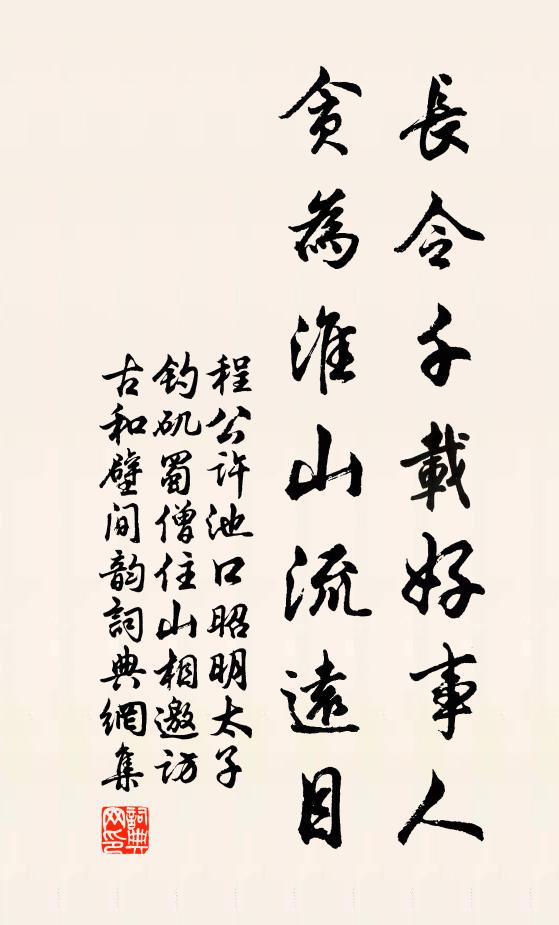 長令千載好事人
貪為淮山流遠目
程公許池口昭明太子
釣矶蜀僧住山相邀访
古和壁间韵詞典網集
詞典
网印